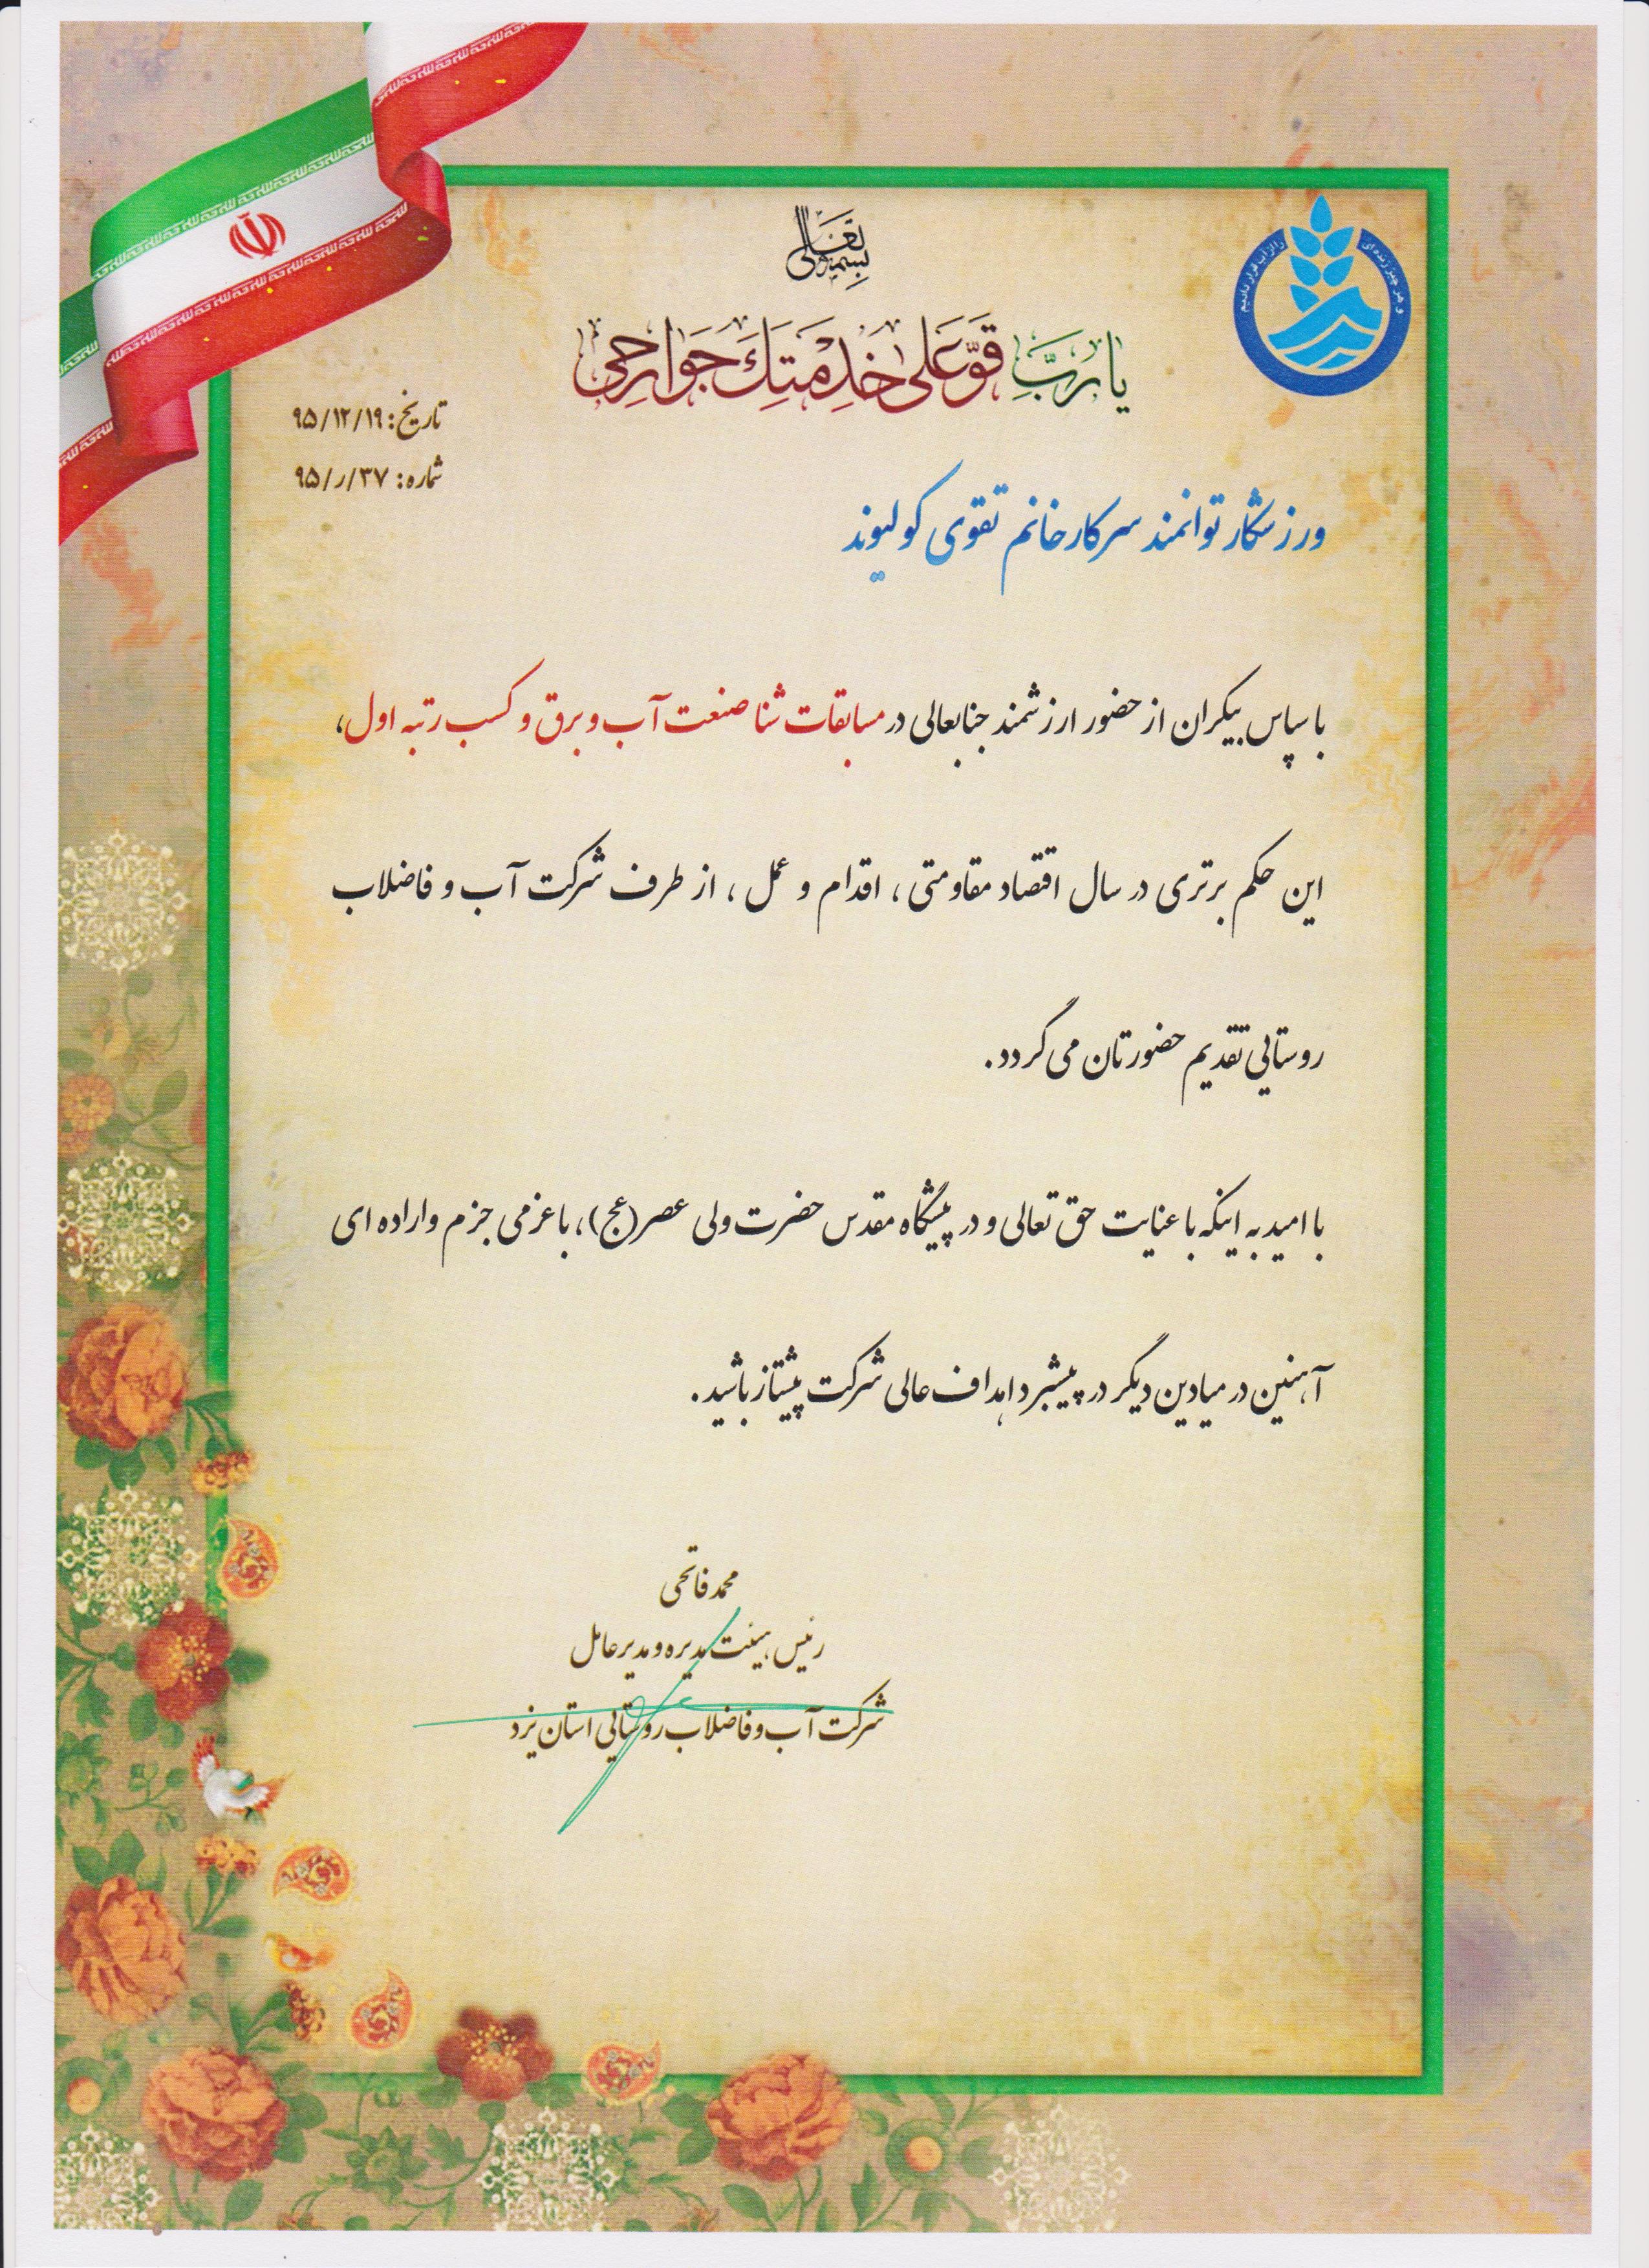 بسمه تعالی
و هر چیز زنده ای را از آب قرار دادیم
یا رَبِّ قَوِّ عَلی خِدْمَتِكَ جَوارِحی
تاریخ: ۹۵/۱۲/۱۹
شماره: ۳۷/ر/۹۵
ورزشکار توانمند سرکار خانم تقوی کولیوند
با سپاس بیکران از حضور ارزشمند جنابعالی در مسابقات شنا صنعت آب و برق و کسب رتبه اول،
این حکم برتری در سال اقتصاد مقاومتی ، اقدام و عمل ، از طرف شرکت آب و فاضلاب
روستایی تقدیم حضورتان می گردد.
با امید به اینکه با عنایت حق تعالی و در پیشگاه مقدس حضرت ولی عصر(عج)، با عزمی جزم و اراده ای
آهنین در میادین دیگر در پیشبرد اهداف عالی شرکت پیشتاز باشید.
محمد فاتحی
رئیس هیئت مدیره و مدیرعامل
شرکت آب و فاضلاب روستایی استان یزد